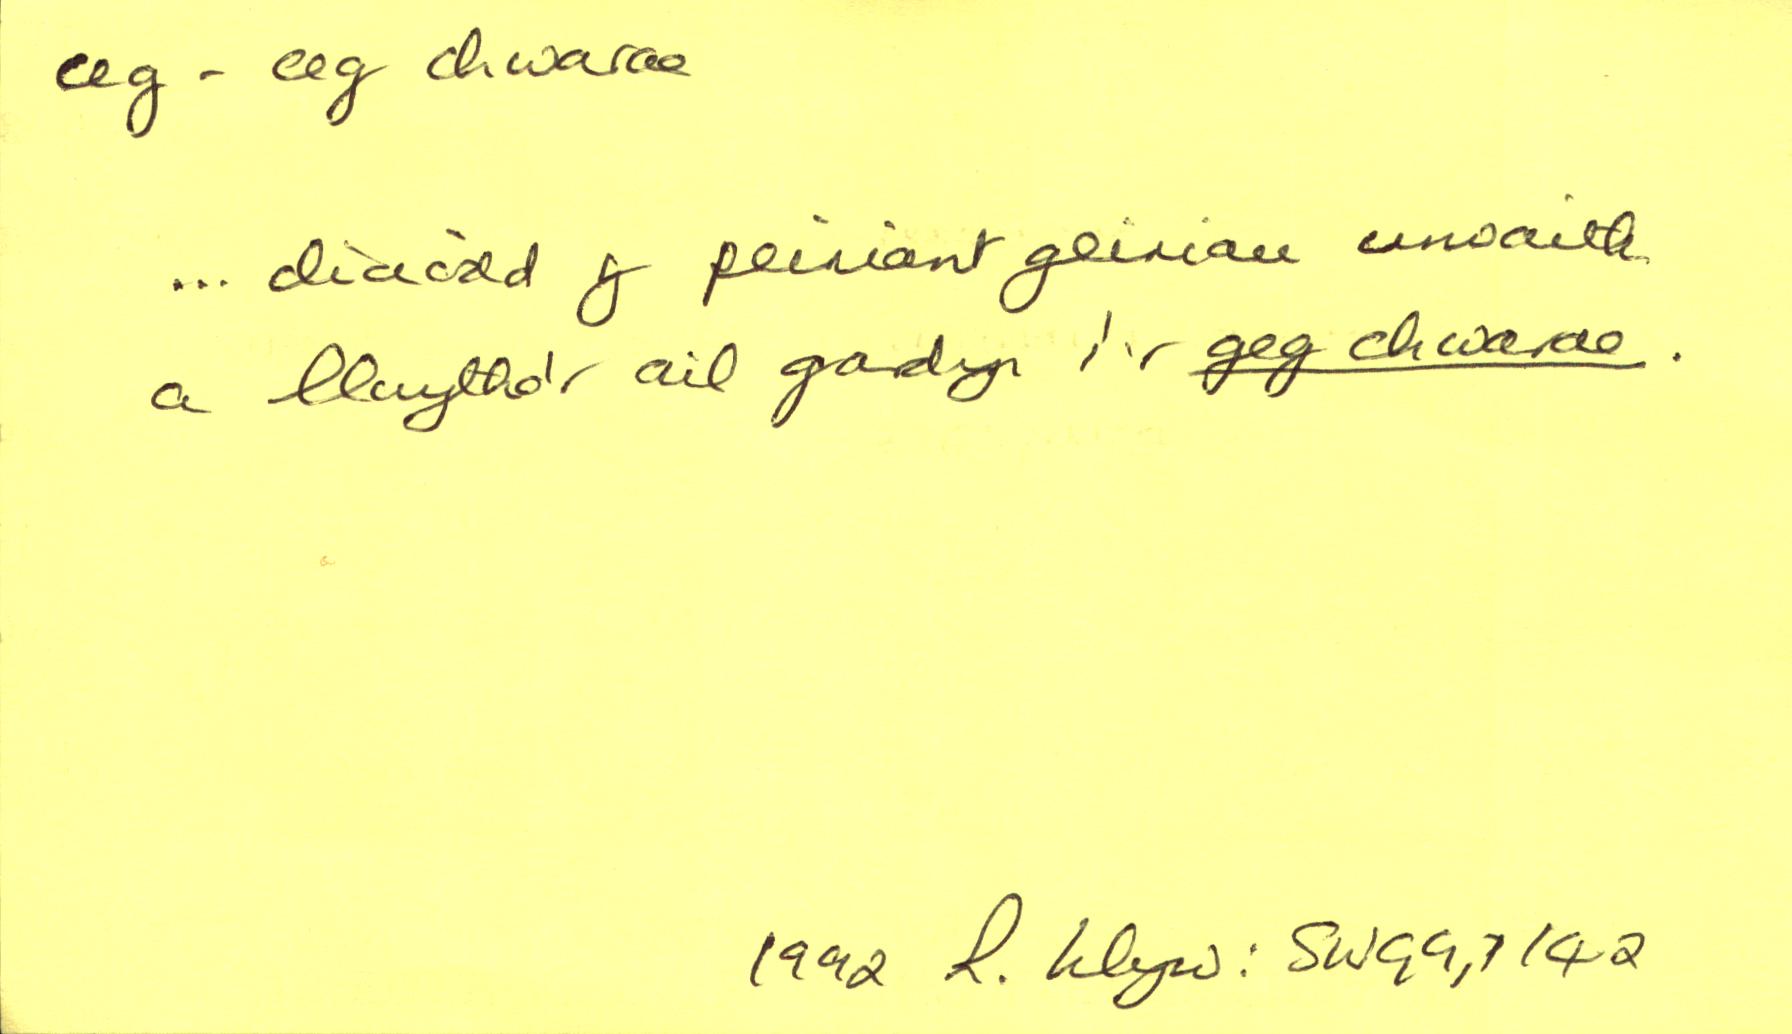 ceg - ceg chwarae
... diciodd y peiriant geiriau unwaith
a llwytho'r ail gardyn i'r geg chwarae.
1992 R. Llyw: SWGG, 142